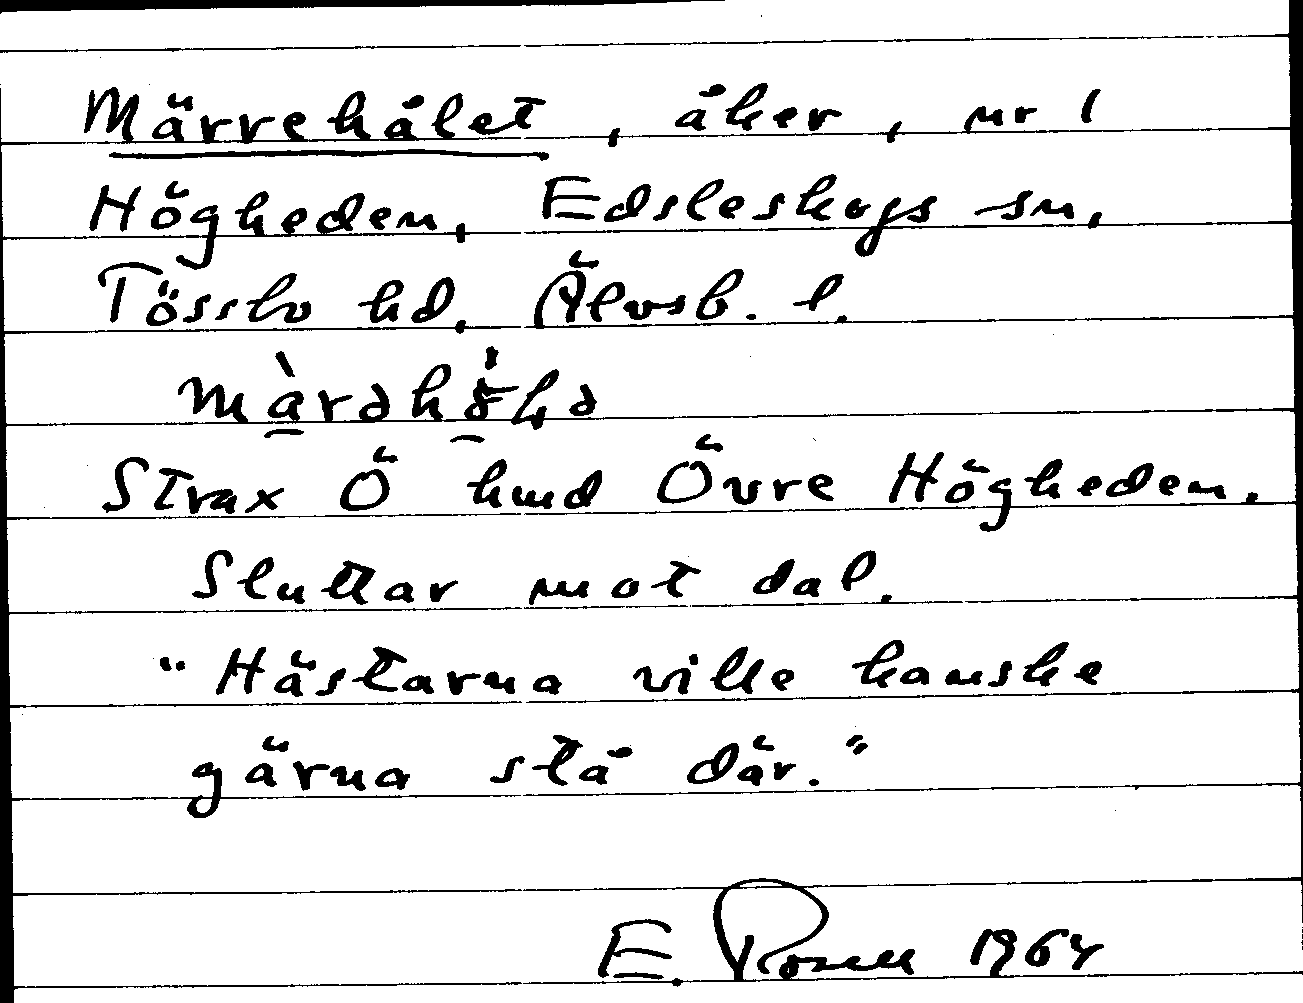 Märrehålet, åker, nr 1
Högheden, Edsleskogs sn,
Tössbo hd, Älvsb. l.
Strax Ö hmd Övre Högheden.
Sluttar mot dal.
"Hästarna ville kanske
gärna stå där."
E. Rosell 1964